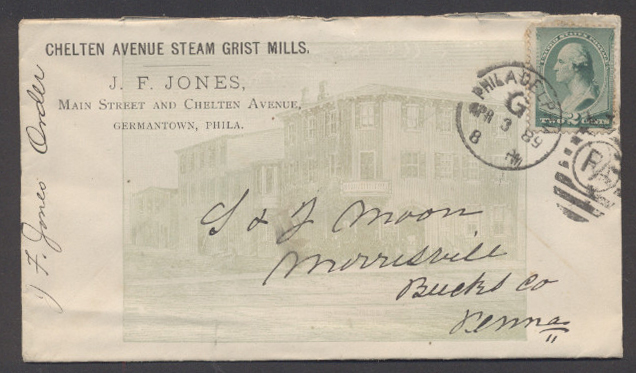 CHELTEN AVENUE STEAM GRIST MILLS.
J. F. JONES,
MAIN STREET AND CHELTEN AVENUE,
GERMANTOWN, PHILA.
J F. Jones Order
PHILADE P
G
APR 3 89
8 PM
TWO 2 CENTS
PA
S & J Moon
Morrisville
Bucks Co
Penna